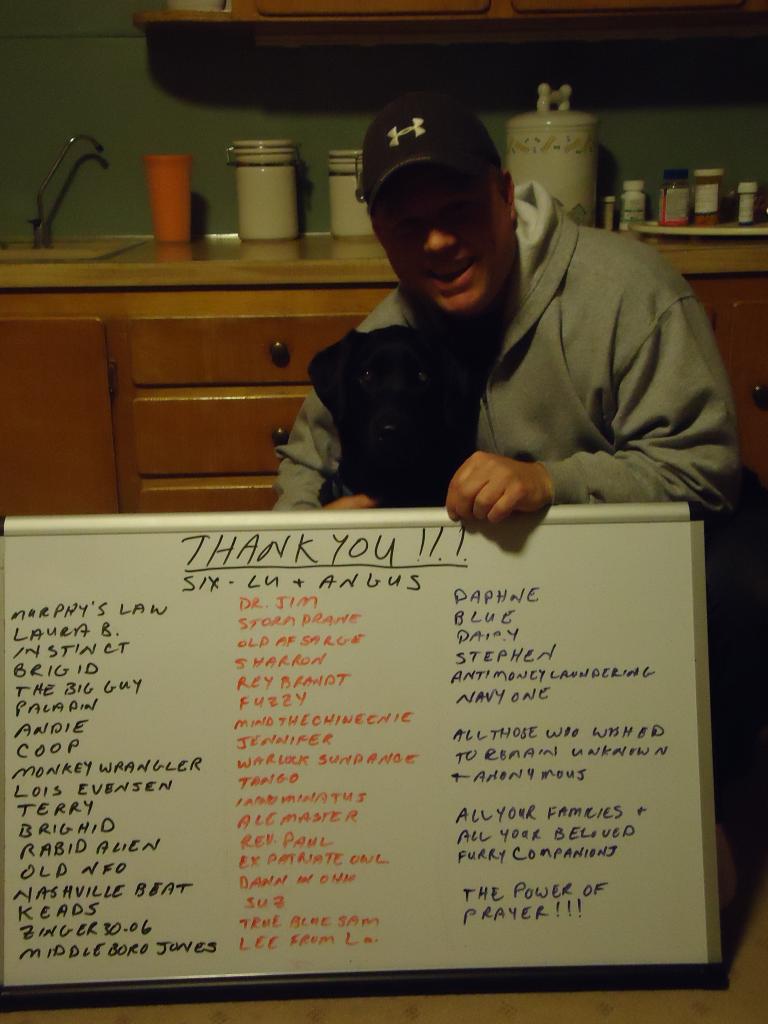 THANK YOU !!!
SIX-LU + ANGUS
MURPHY'S LAW
LAURA B.
INSTINCT
BRIGID
THE BIG GUY
PALADIN
ANDIE
COOP
MONKEY WRANGLER
LOIS EVENSEN
TERRY
BRIGHID
RABID ALIEN
OLD NFO
NASHVILLE BEAT
KEADS
ZINGER 30-06
MIDDLEBORO JONES
DR. JIM
STORM DRANE
OLD AF SARGE
SHARRON
REY BRANDT
FUZZY
MINDTHECHINEENIE
JENNIFER
WARLOCK SUNDANCE
TANGO
INNOMINATUS
ALEMASTER
REV. PAUL
EX PATRIATE OWL
DANN IN OHIO
SUZ
TRUE BLUE SAM
LEE FROM La.
DAPHNE
BLUE
STEPHEN
ANTIMONEYLAUNDERING
NAVY ONE
ALL THOSE WHO WISHED
TO REMAIN UNKNOWN
+ ANONYMOUS
ALL YOUR FAMILIES +
ALL YOUR BELOVED
FURRY COMPANIONS
THE POWER OF
PRAYER!!!